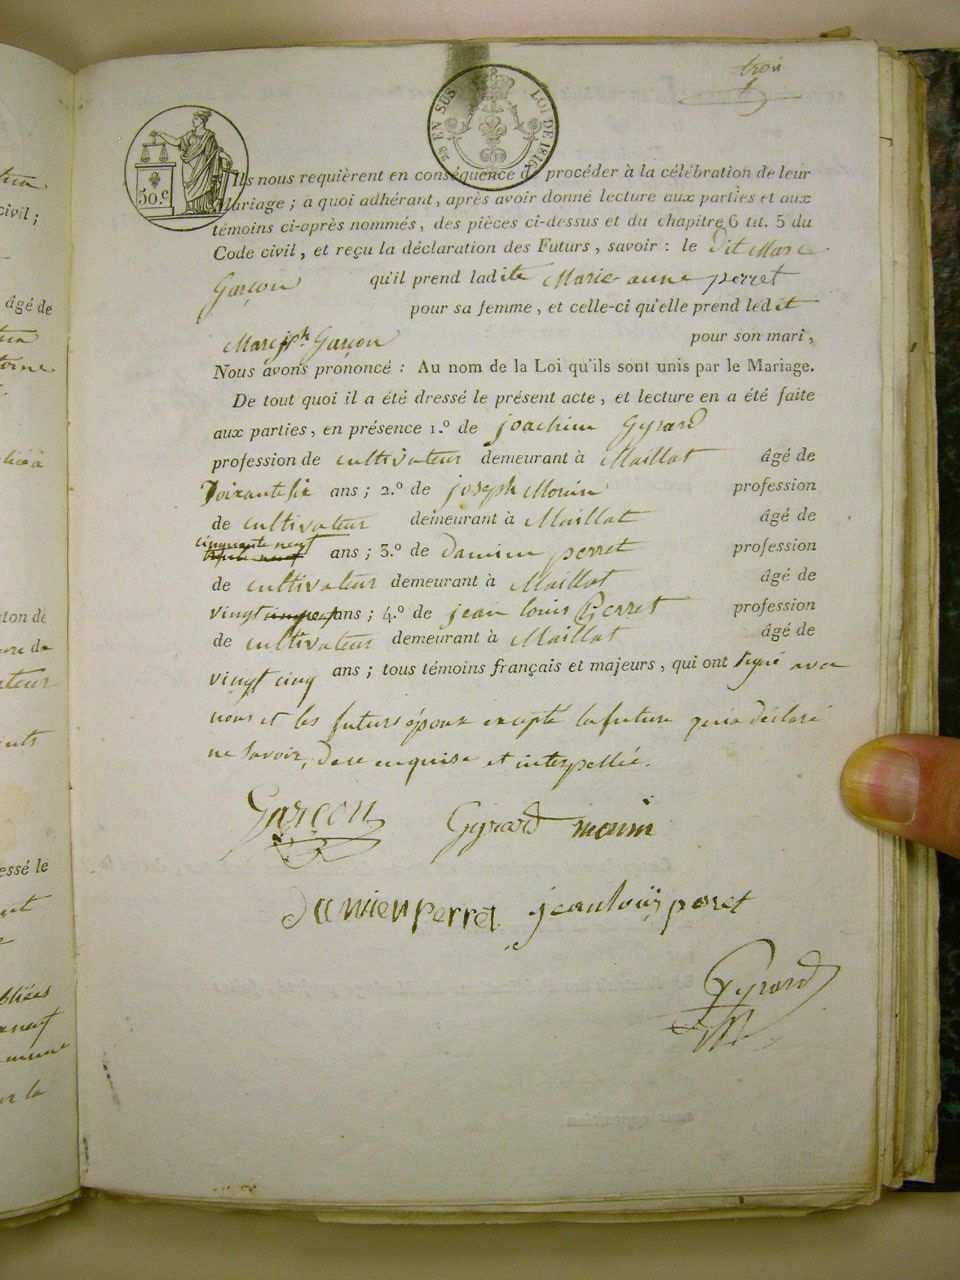 trois
EN SUS LOI DE 1816
50.c
Ils nous requièrent en conséquence de procéder à la célébration de leur
Mariage ; à quoi adhérant, après avoir donné lecture aux parties et aux
témoins ci-après nommés, des pièces ci-dessus et du chapitre 6 tit. 5 du
Code civil, et reçu la déclaration des Futurs, savoir : le dit Marc
Garçon qu'il prend ladite Marie anne perret
pour sa femme, et celle-ci qu'elle prend ledit
Marc jph Garçon pour son mari,
Nous avons prononcé : Au nom de la Loi qu'ils sont unis par le Mariage.
De tout quoi il a été dressé le présent acte, et lecture en a été faite
aux parties, en présence 1.o de joachim Gyrard
profession de cultivateur demeurant à Maillat âgé de
Soixante six ans ; 2.o de joseph Monin profession
de cultivateur demeurant à Maillat âgé de
cinquante neuf
trente neuf ans ; 3.o de damien perret profession
de cultivateur demeurant à Maillat âgé de
vingt ans ; 4.o de jean louis Perret profession
de cultivateur demeurant à Maillat âgé de
vingt cinq ans ; tous témoins français et majeurs, qui ont signé avec
nous et les futurs époux excepté la future qui a déclaré
ne Savoir, de ce enquise et interpellée.
Garçon Gyrard monin
damien perret jean louis peret
Gyrard